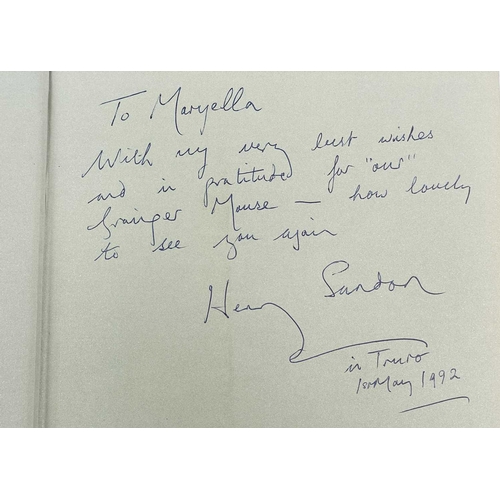 To Maryella
With my very best wishes
and in gratitude for "our"
Grainger Mouse — how lovely
to see you again
Henry Sandon
in Truro
1st May 1992